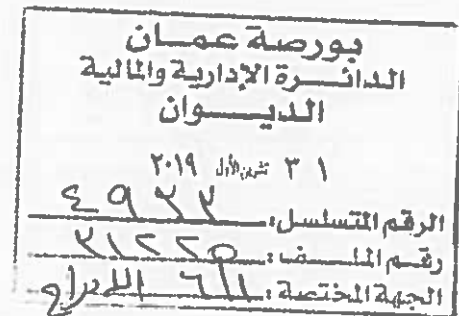 بورصة عمان
الدائرة الإدارية والمالية
الديوان
٣١ تشرين الأول ٢٠١٩
الرقم المتسلسل:
رقم الملف: ٣١٢٢٥
الجهة المختصة: الإدراج